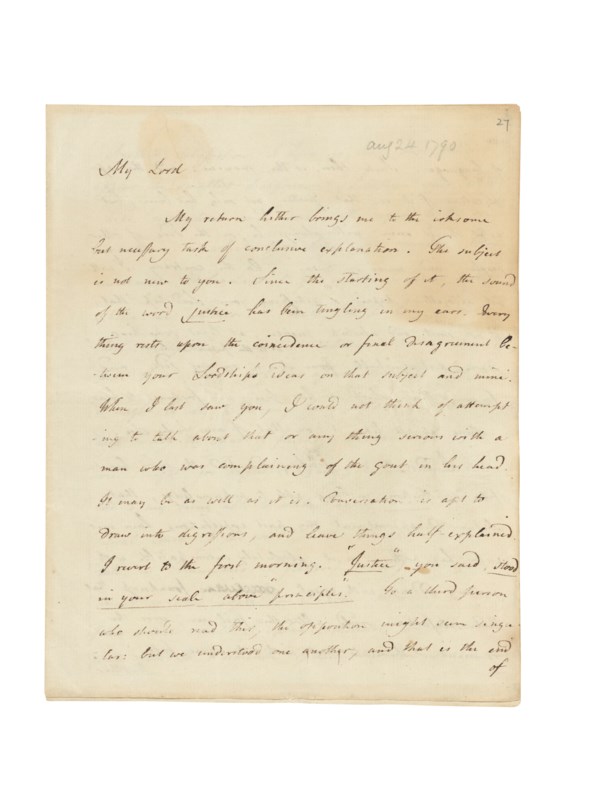 27
aug 24 1790
My Lord
My return hither brings me to the irksome
but necessary task of conclusive explanation. The subject
is not new to you. Since the starting of it, the sound
of the word justice has been tingling in my ears. Every
thing rests upon the coincidence or final disagreement be-
tween your Lordship's ideas on that subject and mine.
When I last saw you, I could not think of attempt
-ing to talk about that or any thing serious with a
man who was complaining of the gout in his head.
It may be as well as it is. Conversation is apt to
draw into digressions, and leave things half-explained.
I revert to the first morning. "Justice" you said, stood
in your scale above "principles". To a third person
who should read this, the opposition might seem singu-
-lar: but we understood one another, and that is the end
of